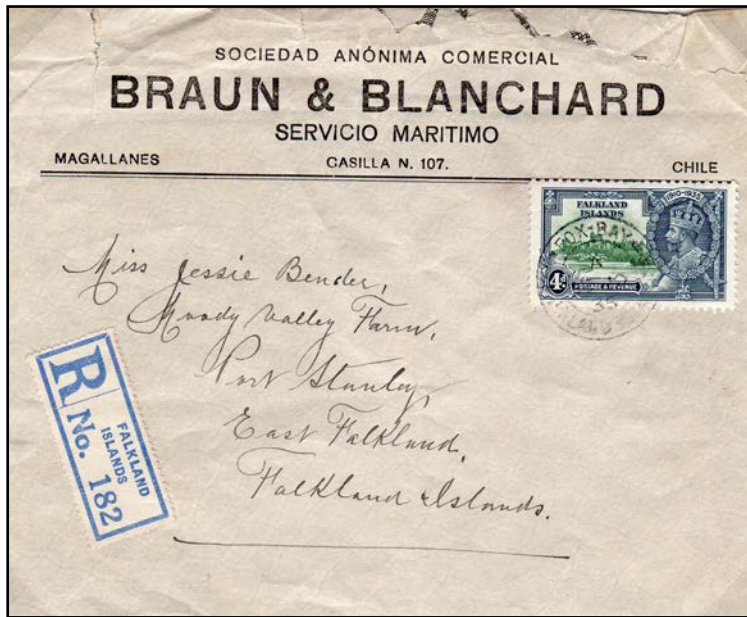 SOCIEDAD ANÓNIMA COMERCIAL
BRAUN & BLANCHARD
SERVICIO MARITIMO
MAGALLANES CASILLA N. 107. CHILE
FALKLAND
ISLANDS
1910-1935
4d
POSTAGE & REVENUE
FOX-BAY
A
35
Miss Jessie Bender,
Moody Valley Farm,
Port Stanley,
East Falkland,
Falkland Islands.
R
FALKLAND
ISLANDS
No. 182